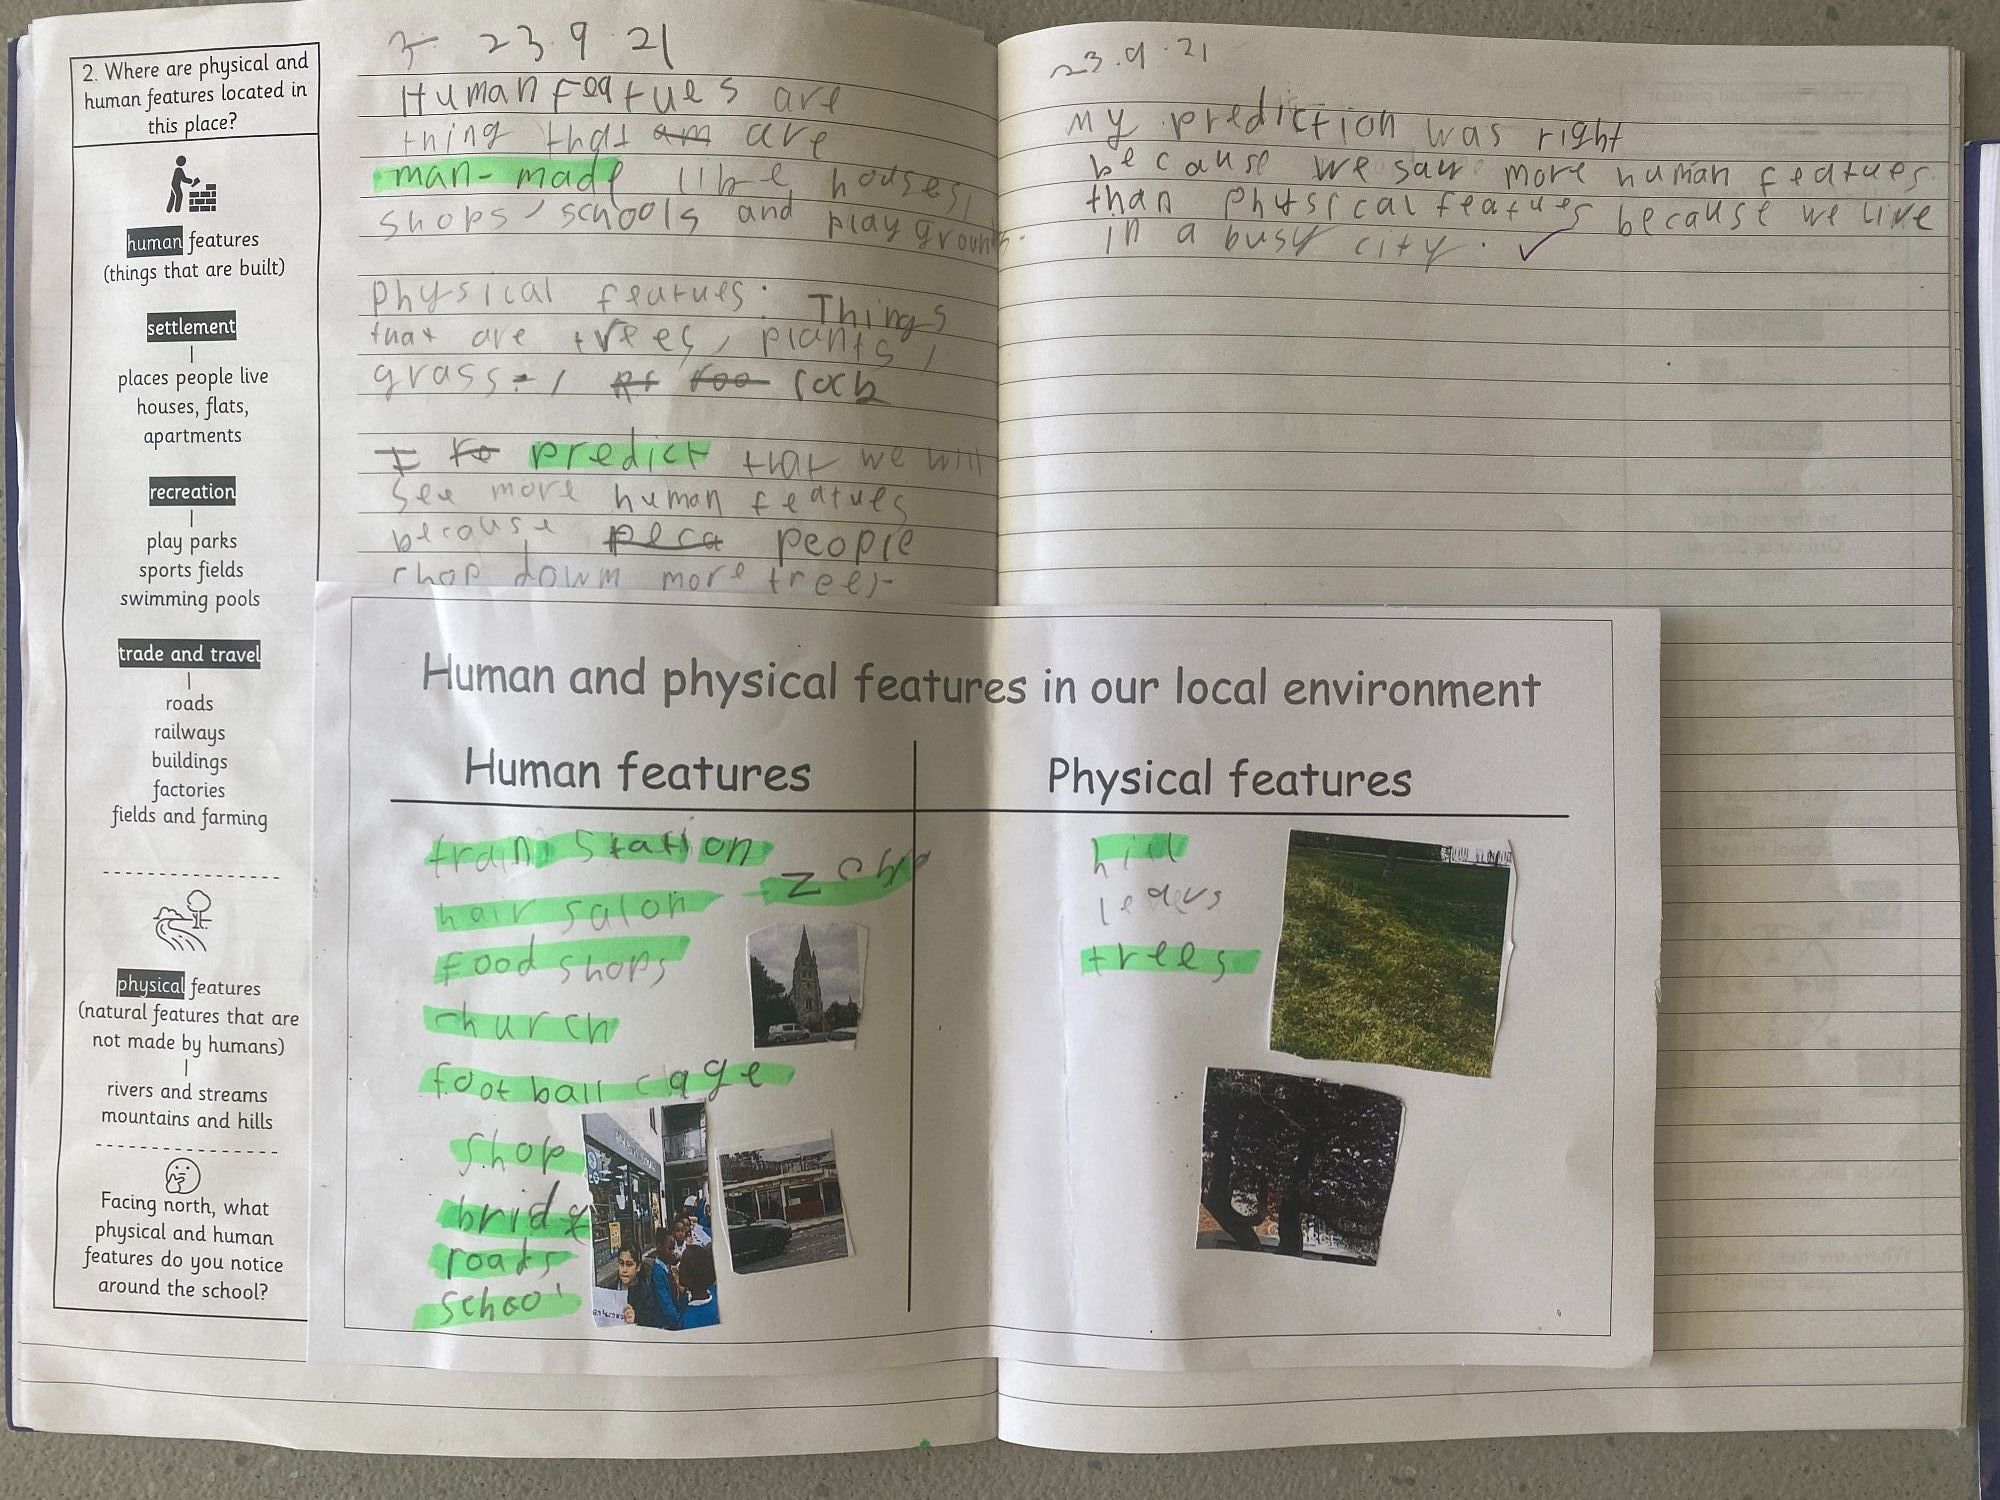 2. Where are physical and
human features located in
this place?
human features
(things that are built)
settlement
places people live
houses, flats,
apartments
recreation
play parks
sports fields
swimming pools
trade and travel
roads
railways
buildings
factories
fields and farming
physical features
(natural features that are
not made by humans)
rivers and streams
mountains and hills
Facing north, what
physical and human
features do you notice
around the school?
23.9.21
Human featues are
thing that am are
man-made like houses,
shops, schools and play grounds.
Physical featues. Things
that are trees, plants,
grass, rock
I predict that we will
see more human featues
because peca people
chop down more trees
23.9.21
My prediction was right
because we saw more human featues
than phystcal featues because we live
in a busy city.
Human and physical features in our local environment
Human features
train station
hair salon
food shops
church
foot ball cage
shop
roads
school
Physical features
hill
leavs
trees